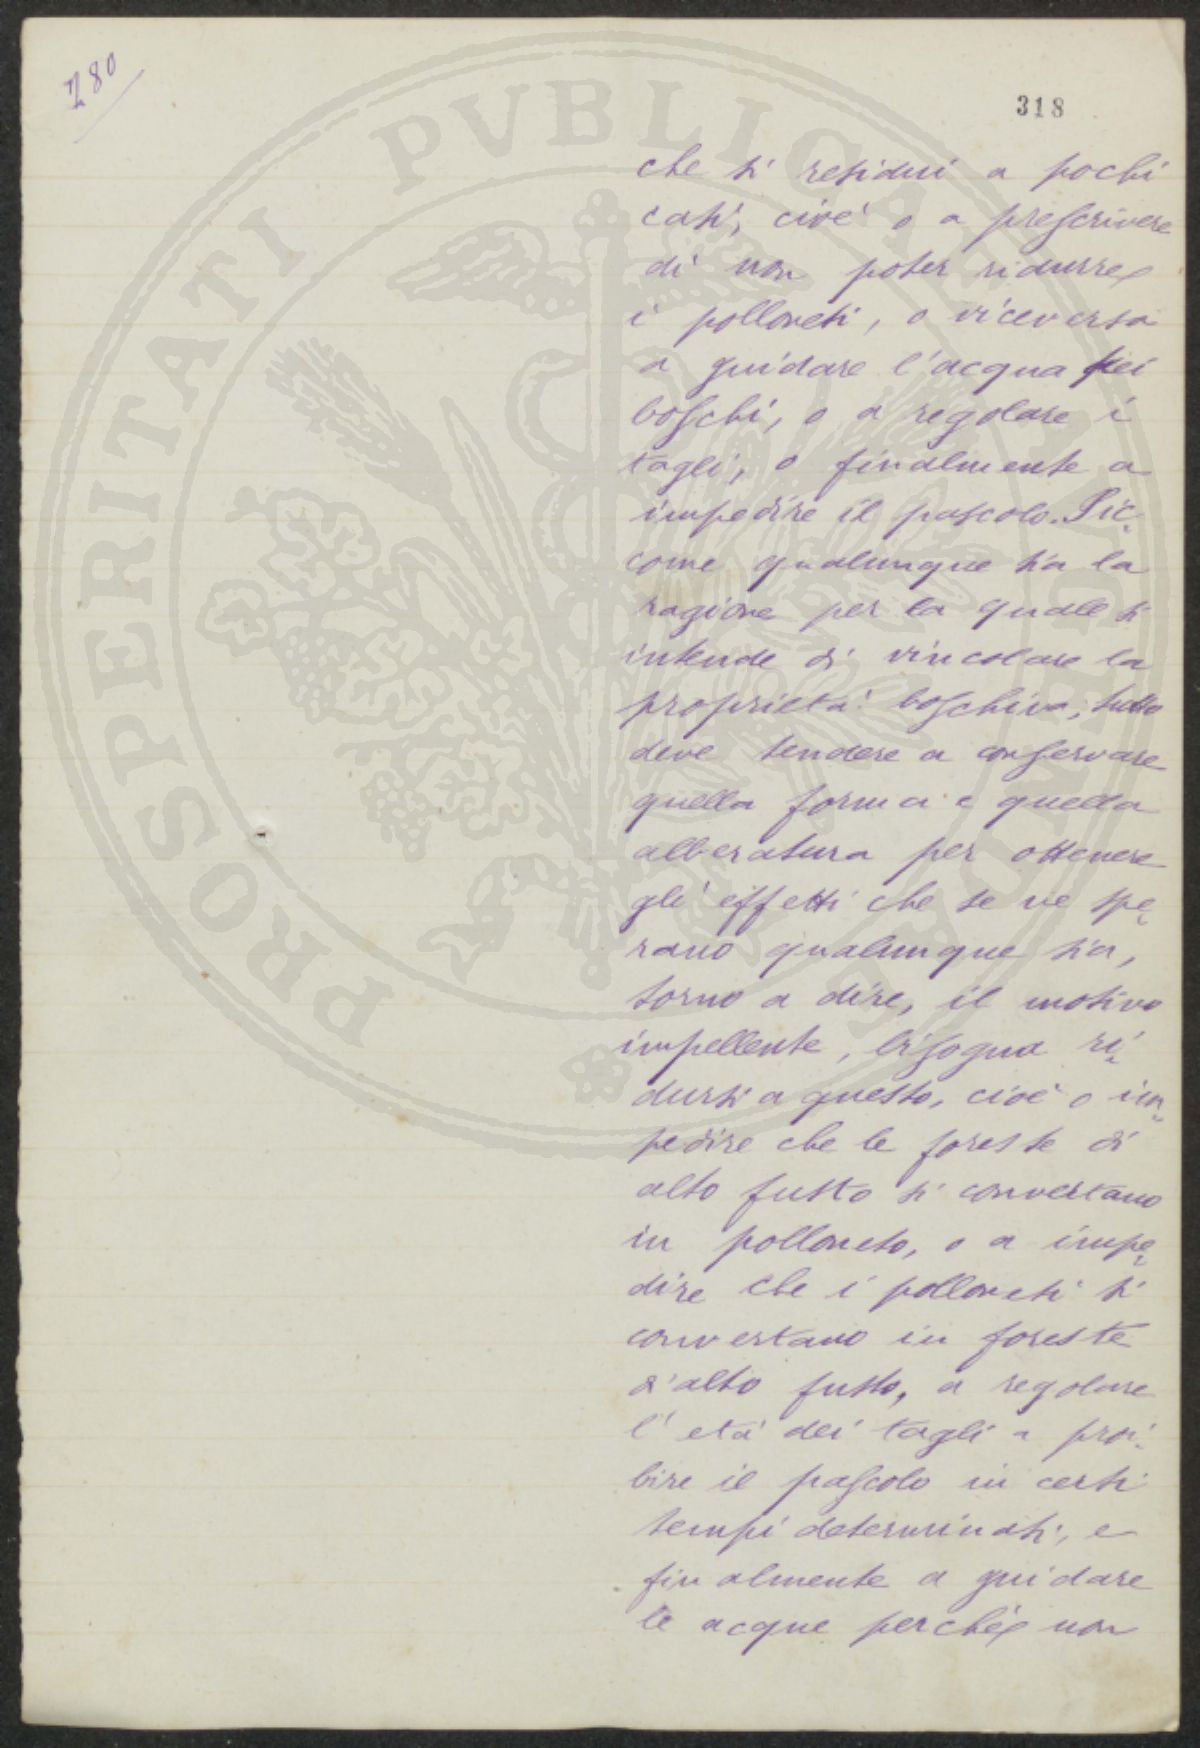 280
318
che si residui a pochi
casi, cioè o a prescrivere
di non poter ridurre
i polloneti, o viceversa
a guidare l'acqua nei
boschi, o a regolare i
tagli, o finalmente a
impedire il pascolo. Sic-
come qualunque sia la
ragione per la quale si
intende di vincolare la
proprietà boschiva, tutto
deve tendere a conservare
quella forma e quella
alberatura per ottenere
gli effetti che se ne spe-
rano qualunque sia,
torno a dire, il motivo
impellente, bisogna ri-
dursi a questo, cioè o im-
pedire che le foreste di
alto fusto si convertano
in polloneto, o a impe-
dire che i polloneti si
convertano in foreste
d'alto fusto, a regolare
l'età dei tagli a proi-
bire il pascolo in certi
tempi determinati, e
finalmente a guidare
le acque perché non
PROSPERITATI PVBLICAE